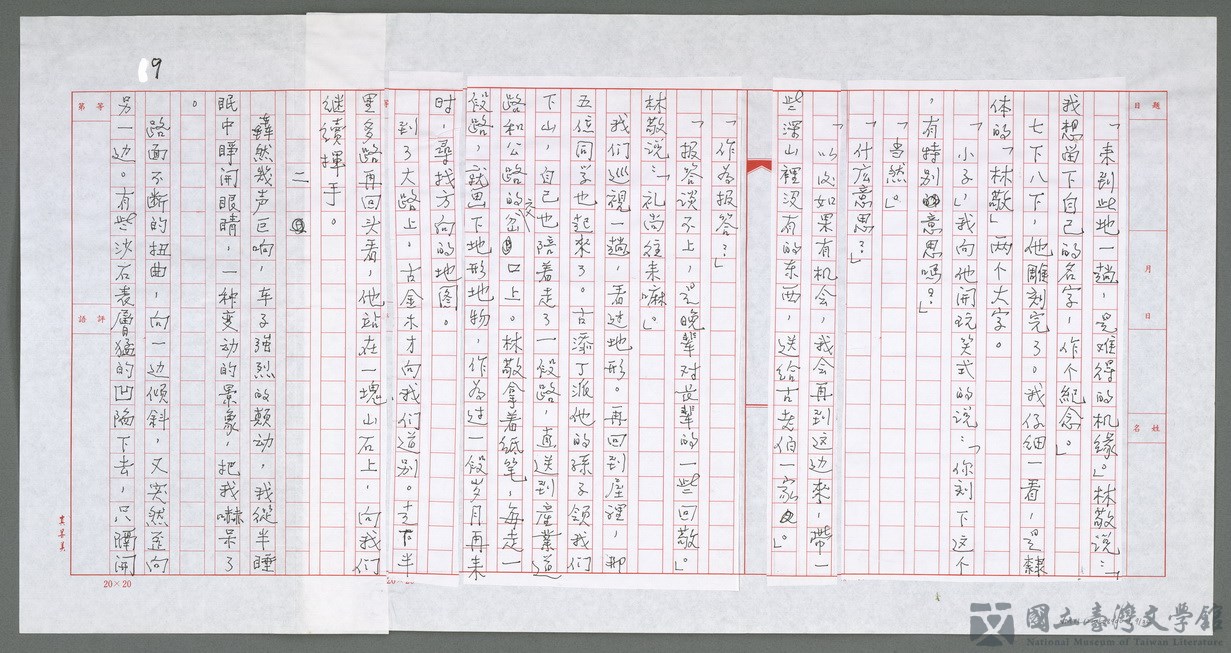 「来到此地一趟，是难得的机缘。」林敬说：「
我想留下自己的名字，作个纪念。」
七下八下，他雕刻完了。我仔细一看，是隸
体的「林敬」两个大字。
「小子」，我向他開玩笑式的说：「你刻下这个
，有特别意思嗎？」
「当然。」
「什庅意思？」
「以後如果有机会，我会再到这边來，帶一
些深山裡没有的东西，送给古老伯一家。」
「作为报答？」
「报答谈不上，是晚輩对長輩的一些回敬。」
林敬说：「礼尚往来嘛。」
我们巡視一趟，看过地形。再回到屋裡，那
五位同学也起來了。古添丁派他的孫子领我们
下山，自己也陪着走了一段路，直送到產業道
路和公路的交岔口上。林敬拿着纸笔，每走一
段路，就畄下地形地物，作為过一段岁月再来
时，尋找方向的地图。
到了大路上，古金木才向我们道别。走了半
里多路再回头看，他站在一塊山石上，向我们
继续揮手。
二
轟然幾声巨响，车子強烈的顛动，我從半睡
眠中睁開眼睛，一种变动的景象，把我嚇呆了
。
路面不断的扭曲，向一边倾斜，又突然歪向
另一边。有些沙石表層猛的凹陷下去，只瞬间
19
題目
月 日
姓名
等第
評語
20×20
20×20
國立臺灣文学館
National Museum of Taiwan Literature